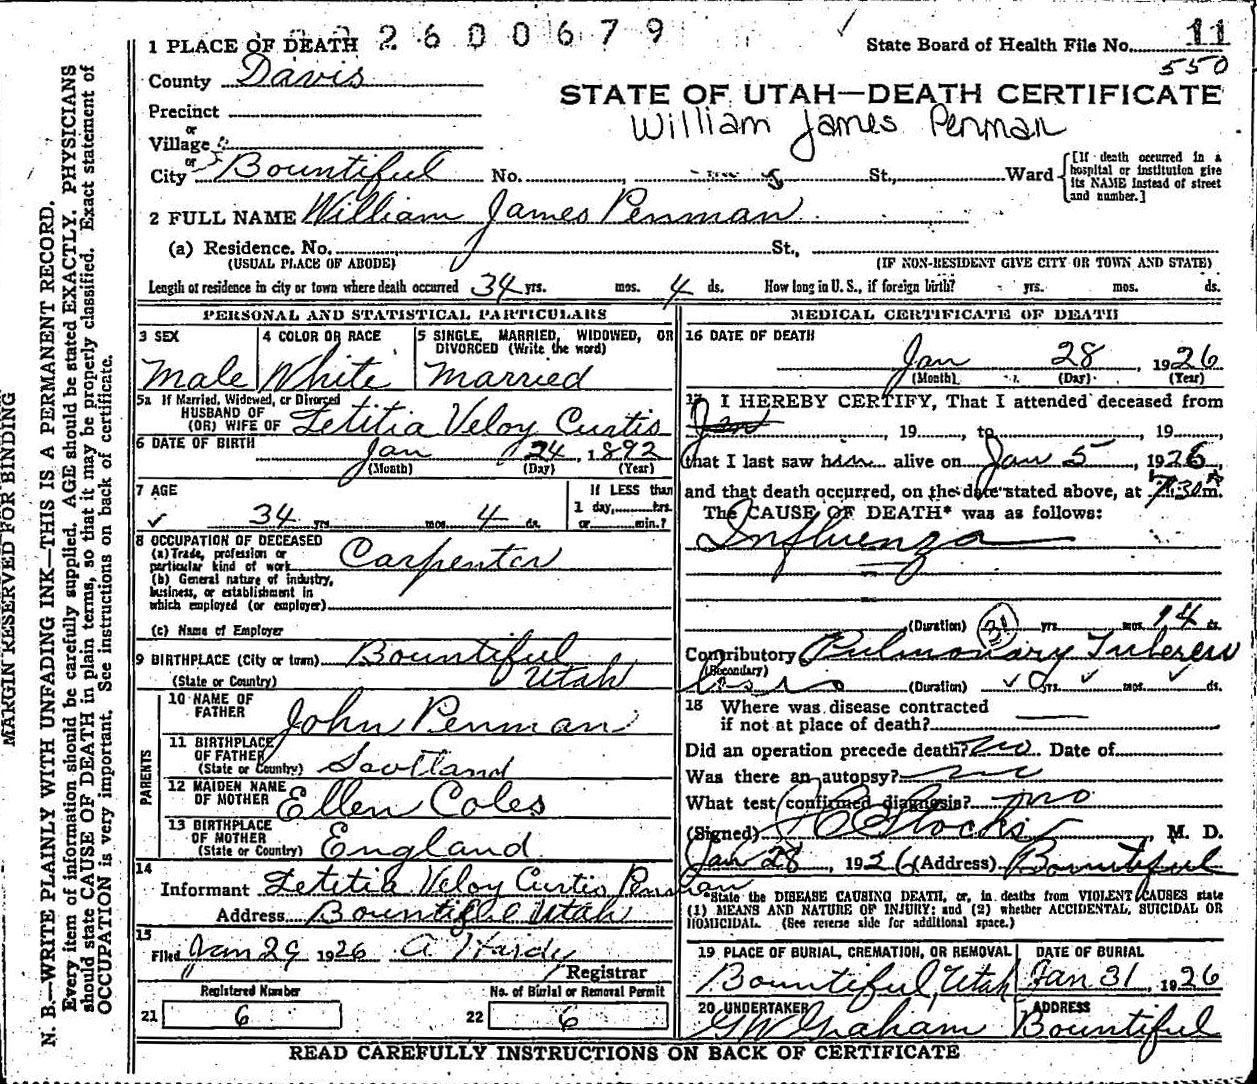 2600679
1 PLACE OF DEATH
State Board of Health File No. 11
550
County Davis
STATE OF UTAH—DEATH CERTIFICATE
Precinct
William James Penman
or
Village
or
City Bountiful No. St., Ward
[If death occurred in a hospital or institution give its NAME instead of street and number.]
2 FULL NAME William James Penman
(a) Residence. No. St.,
(USUAL PLACE OF ABODE) (IF NON-RESIDENT GIVE CITY OR TOWN AND STATE)
Length of residence in city or town where death occurred 34 yrs. mos. 4 ds. How long in U. S., if foreign birth? yrs. mos. ds.
PERSONAL AND STATISTICAL PARTICULARS
3 SEX
Male
4 COLOR OR RACE
White
5 SINGLE, MARRIED, WIDOWED, OR
DIVORCED (Write the word)
Married
5a If Married, Widowed, or Divorced
HUSBAND OF
(OR) WIFE OF Letitia Veloy Curtis
6 DATE OF BIRTH Jan 24, 1892
(Month) (Day) (Year)
7 AGE
34 yrs. mos. 4 ds.
If LESS than
1 day, hrs.
or min.?
8 OCCUPATION OF DECEASED
(a) Trade, profession or
particular kind of work Carpenter
(b) General nature of industry,
business, or establishment in
which employed (or employer)
(c) Name of Employer
9 BIRTHPLACE (City or town) Bountiful
(State or Country) Utah
PARENTS
10 NAME OF
FATHER John Penman
11 BIRTHPLACE
OF FATHER
(State or Country) Scotland
12 MAIDEN NAME
OF MOTHER Ellen Coles
13 BIRTHPLACE
OF MOTHER
(State or Country) England
14
Informant Letitia Veloy Curtis Penman
Address Bountiful Utah
15
Filed Jan 29 1926 A Hardy
Registrar
Registered Number
21 6
No. of Burial or Removal Permit
22 6
MEDICAL CERTIFICATE OF DEATH
16 DATE OF DEATH
Jan 28 1926
(Month) (Day) (Year)
17 I HEREBY CERTIFY, That I attended deceased from
Jan , 19 , to , 19 ,
that I last saw him alive on Jan 5, 1926,
and that death occurred, on the date stated above, at 7:30 m.
The CAUSE OF DEATH* was as follows:
Influenza
(Duration) 31 yrs. mos. 14 ds.
Contributory Pulmonary Tubercu
(Secondary)
losis (Duration) yrs. mos. ds.
18 Where was disease contracted
if not at place of death?
Did an operation precede death? no Date of
Was there an autopsy? no
What test confirmed diagnosis? no
(Signed) Stocks, M. D.
Jan 28, 1926 (Address) Bountiful
*State the DISEASE CAUSING DEATH, or, in deaths from VIOLENT CAUSES state
(1) MEANS AND NATURE OF INJURY; and (2) whether ACCIDENTAL, SUICIDAL OR
HOMICIDAL. (See reverse side for additional space.)
19 PLACE OF BURIAL, CREMATION, OR REMOVAL
Bountiful, Utah
DATE OF BURIAL
Jan. 31, 1926
20 UNDERTAKER
G W Graham
ADDRESS
Bountiful
READ CAREFULLY INSTRUCTIONS ON BACK OF CERTIFICATE
MARGIN RESERVED FOR BINDING
N. B.—WRITE PLAINLY WITH UNFADING INK—THIS IS A PERMANENT RECORD.
Every item of information should be carefully supplied. AGE should be stated EXACTLY. PHYSICIANS
should state CAUSE OF DEATH in plain terms, so that it may be properly classified. Exact statement of
OCCUPATION is very important. See instructions on back of certificate.